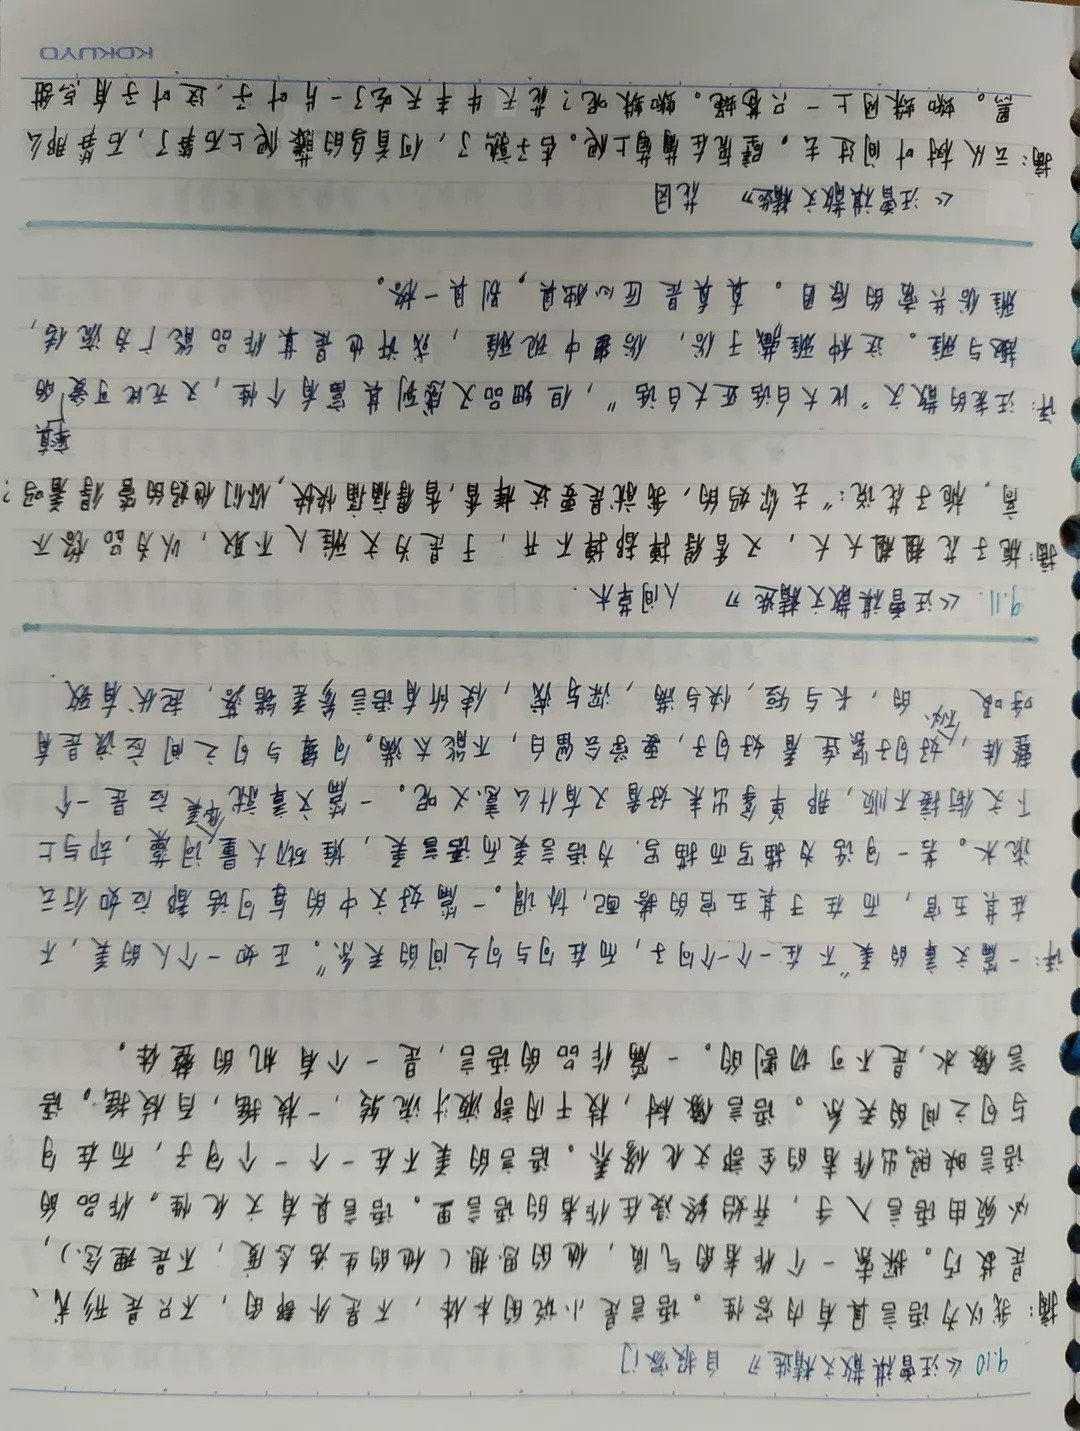 9.10 《汪曾祺散文精选》 自报家门
摘：我以为语言具有内容性。语言是小说的本体，不是外部的，不只是形式、
是技巧。探索一个作者的气质，他的思想（他的生活态度，不是理念），
必须由语言入手，并始终浸在作者的语言里。语言具有文化性。作品的
语言映照出作者的全部文化修养。语言的美不在一个一个句子，而在句
与句之间的关系。语言像树，枝干内部液汁流转，一枝摇，百枝摇。语
言像水，是不可切割的。一篇作品的语言，是一个有机的整体。
评：一篇文章的美“不在一个一个句子，而在句与句之间的关系”。正如一个人的美，不
在其五官，而在于其五官的搭配，协调。一篇好文中的每句话都应如行云
流水。若一句话为描写而描写，为语言美而语言美，堆砌大量词藻，却与上
下文衔接不顺，那单拿出来好看又有什么意义呢。一篇文章就应是一个
整体，好句子紧连着好句子，要学会留白，不能太满。句与句之间应该是有
呼吸的，长与短，快与满，深与浅，使所有语言参差错落，起伏有致
9.11. 《汪曾祺散文精选》 人间草木．
摘：栀子花粗粗大大，又香得掸都掸不开，于是为文雅人不取，以为品格不
高，栀子花说：“去你妈的，我就是要这样香，香得痛痛快快，你们他妈的管得着吗？
率真
评：汪老的散文“比大白话还大白话”，但细品又感到其富有个性，又无比可爱的
趣与雅。这种雅藏于俗，俗中现雅，或许也是其作品能广为流传，
雅俗共赏的原因。真真是匠心独具，别具一格。
《汪曾祺散文精选》 花园
摘：云从树叶间过去。壁虎在葡萄上爬。杏子熟了，何首乌的藤爬上石笋了，石笋那么
黑。蜘蛛网上一只苍蝇。蜘蛛呢？花天牛半天吃了一片叶子，这叶子有点甜
KOKUYO